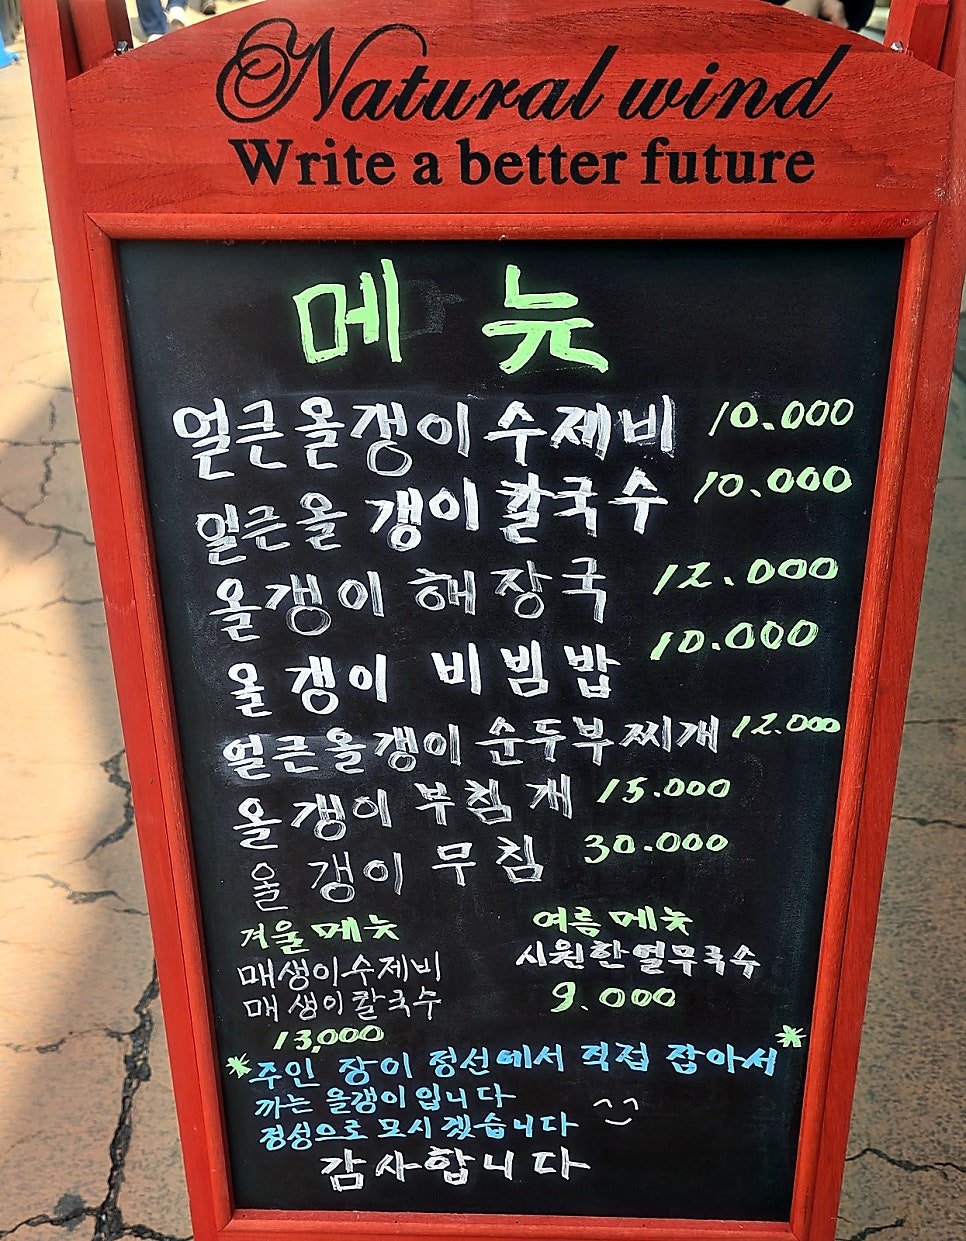 Natural wind
Write a better future
메뉴
얼큰올갱이수제비 10.000
얼큰올갱이칼국수 10.000
올갱이 해장국 12.000
올갱이 비빔밥 10.000
얼큰올갱이 순두부찌개 12.000
올갱이 부침개 15.000
올갱이 무침 30.000
겨울메뉴
매생이수제비
매생이칼국수
13,000
여름메뉴
시원한열무국수
9.000
*주인장이 정선에서 직접 잡아서*
까는 올갱이입니다
정성으로 모시겠습니다
감사합니다